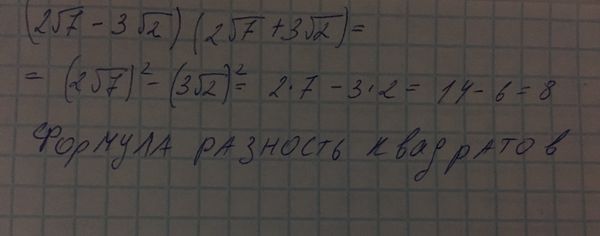 (2√7 - 3√2) (2√7 + 3√2) =
= (2√7)² - (3√2)² = 2·7 - 3·2 = 14 - 6 = 8
Формула разность квадратов